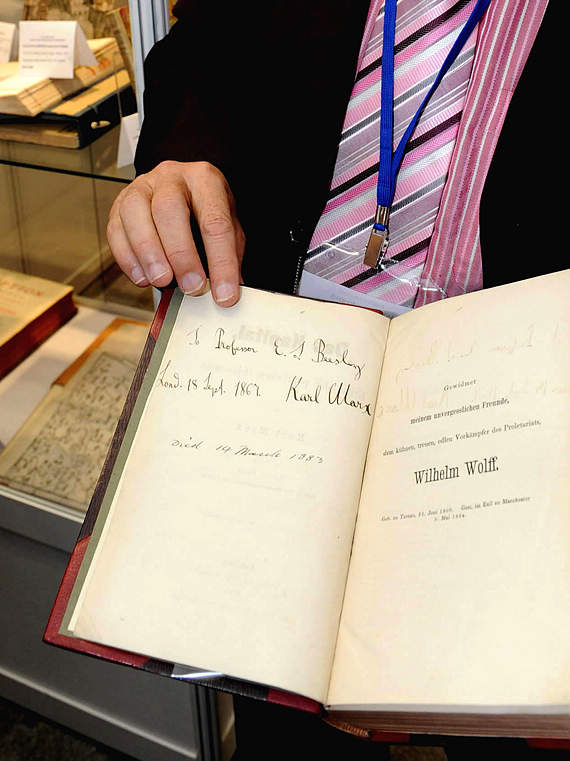 To Professor E. S. Beesly
Lond. 18 Sept. 1867. Karl Marx
Died 14 March 1883
Gewidmet
meinem unvergesslichen Freunde,
dem kühnen, treuen, edlen Vorkämpfer des Proletariats,
Wilhelm Wolff.
Geb. zu Tarnau, 21. Juni 1809. Gest. im Exil zu Manchester
9. Mai 1864.